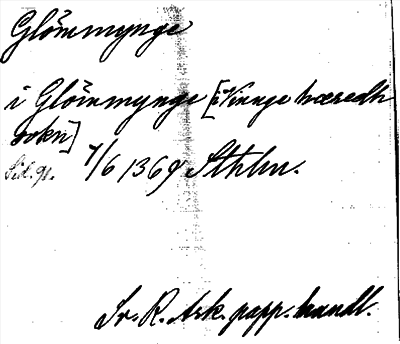 Glömmynge
i Glömmynge [i Vinnge hæredh
sokn]
Sid. 91. 7/6 1369 Sthlm.
Sv. R. Ark. papp. handl.